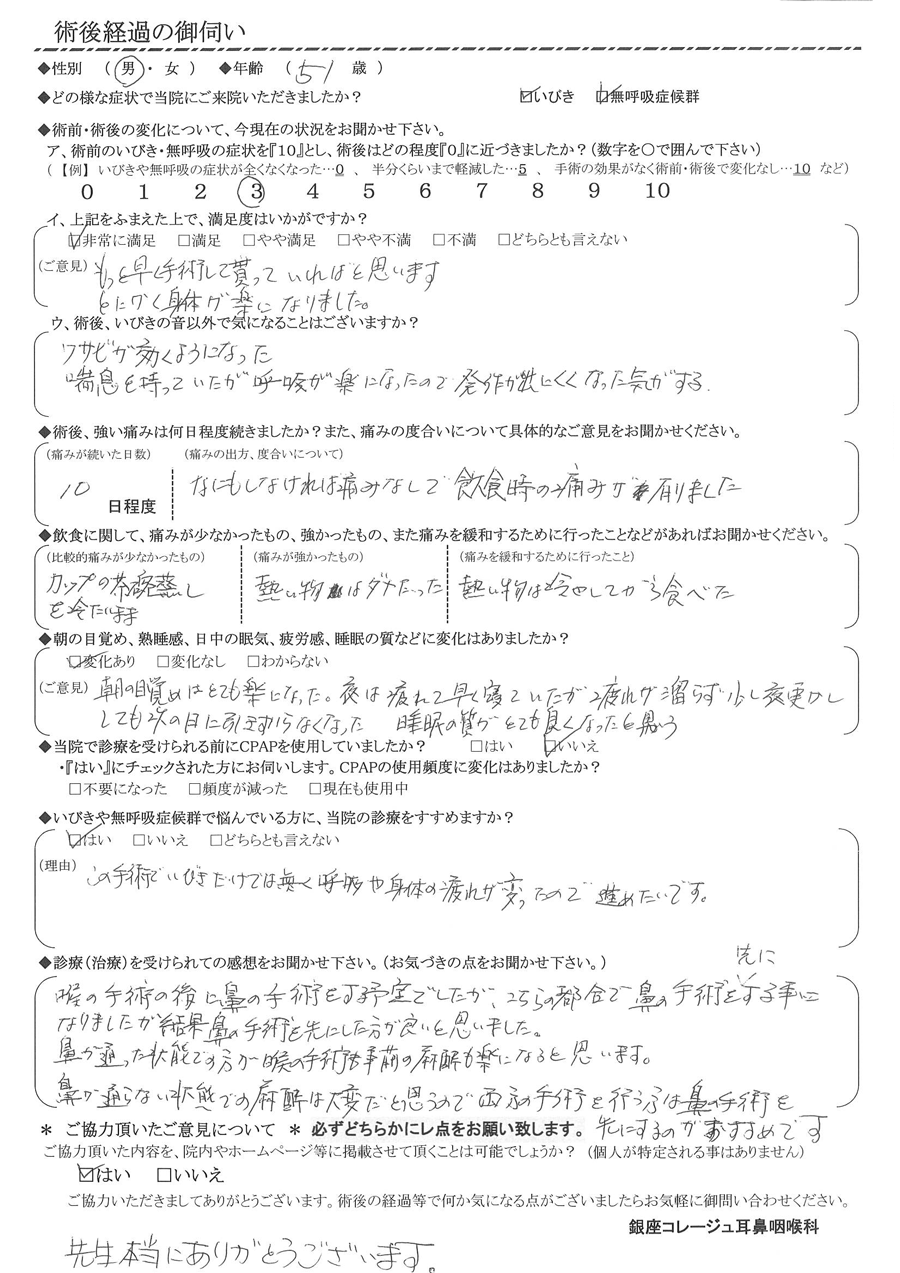 術後経過の御伺い
◆性別 （ 男 ・ 女 ） ◆年齢 （ 51 歳 ）
◆どの様な症状で当院にご来院いただきましたか？ ☑いびき ☑無呼吸症候群
◆術前・術後の変化について、今現在の状況をお聞かせ下さい。
ア、術前のいびき・無呼吸の症状を『10』とし、術後はどの程度『0』に近づきましたか？（数字を○で囲んで下さい）
（ 【例】 いびきや無呼吸の症状が全くなくなった…0 、 半分くらいまで軽減した…5 、 手術の効果がなく術前・術後で変化なし…10 など）
0 1 2 3 4 5 6 7 8 9 10
イ、上記をふまえた上で、満足度はいかがですか？
☑非常に満足 □満足 □やや満足 □やや不満 □不満 □どちらとも言えない
（ご意見） もっと早く手術して貰っていればと思います
とにかく身体が楽になりました。
ウ、術後、いびきの音以外で気になることはございますか？
ワサビが効くようになった
喘息を持っていたが呼吸が楽になったので発作が出にくくなった気がする.
◆術後、強い痛みは何日程度続きましたか？また、痛みの度合いについて具体的なご意見をお聞かせください。
（痛みが続いた日数） （痛みの出方、度合いについて）
10 日程度 なにもしなければ痛みなしで飲食時のみ痛みが有りました
◆飲食に関して、痛みが少なかったもの、強かったもの、また痛みを緩和するために行ったことなどがあればお聞かせください。
（比較的痛みが少なかったもの） （痛みが強かったもの） （痛みを緩和するために行ったこと）
カップの茶碗蒸し 熱い物はダメだった 熱い物は冷やしてから食べた
を冷たいまま
◆朝の目覚め、熟睡感、日中の眠気、疲労感、睡眠の質などに変化はありましたか？
☑変化あり □変化なし □わからない
（ご意見） 朝の目覚めはとても楽になった。夜は疲れて早く寝ていたが疲れが溜らず少し夜更かし
しても次の日に引きずらなくなった 睡眠の質がとても良くなったと思う
◆当院で診療を受けられる前にCPAPを使用していましたか？ □はい ☑いいえ
・『はい』にチェックされた方にお伺いします。CPAPの使用頻度に変化はありましたか？
□不要になった □頻度が減った □現在も使用中
◆いびきや無呼吸症候群で悩んでいる方に、当院の診療をすすめますか？
☑はい □いいえ □どちらとも言えない
（理由） この手術でいびきだけでは無く呼吸や身体の疲れが変ったので進めたいです。
◆診療（治療）を受けられての感想をお聞かせ下さい。（お気づきの点をお聞かせ下さい。） 先に
喉の手術の後に鼻の手術をする予定でしたが、こちらの都合で鼻の手術をする事に
なりましたが結果鼻の手術を先にした方が良いと思いました。
鼻が通った状態での方が喉の手術事前の麻酔も楽になると思います。
鼻が通らない状態での麻酔は大変だと思うので両方の手術を行う方は鼻の手術を
先にするのがおすすめです
＊ ご協力頂いたご意見について ＊ 必ずどちらかにレ点をお願い致します。
ご協力頂いた内容を、院内やホームページ等に掲載させて頂くことは可能でしょうか？ （個人が特定される事はありません）
☑はい □いいえ
ご協力いただきましてありがとうございます。術後の経過等で何か気になる点がございましたらお気軽に御問い合わせください。
銀座コレージュ耳鼻咽喉科
先生本当にありがとうございます。